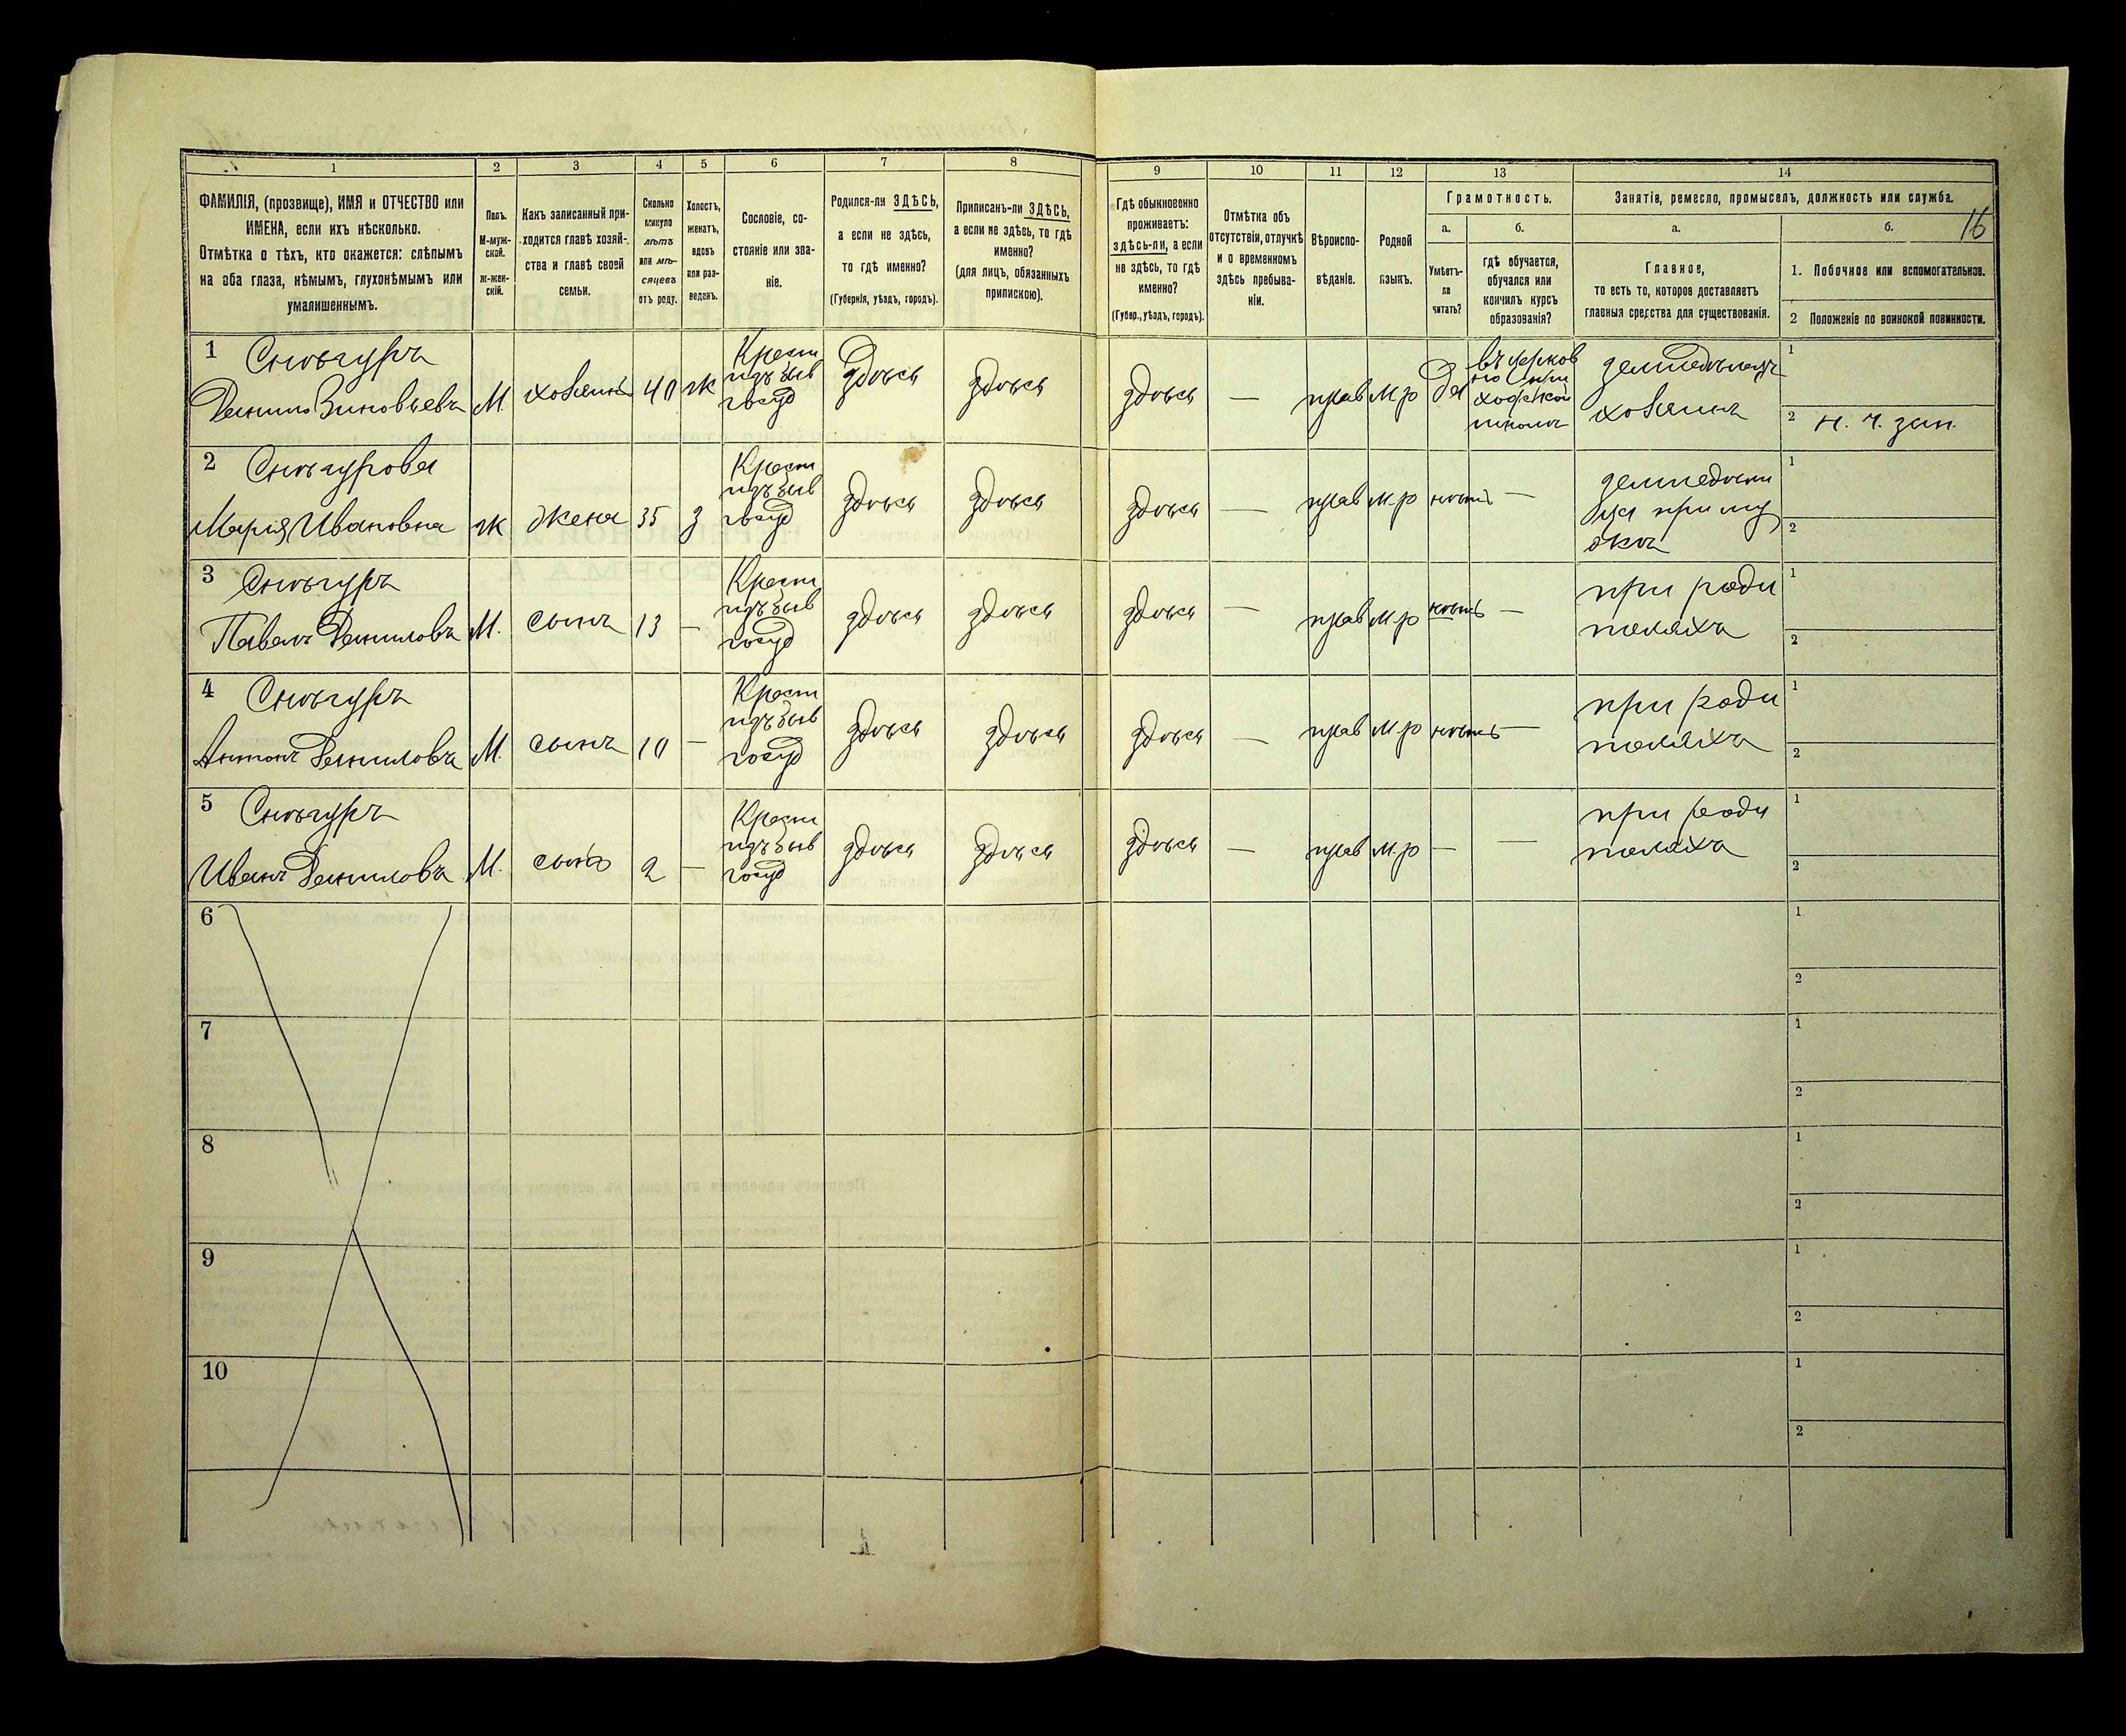 1
2
3
4
5
6
7
8
9
10
11
12
13
14
ФАМИЛІЯ, (прозвище), ИМЯ и ОТЧЕСТВО или
ИМЕНА, если ихъ нѣсколько.
Отмѣтка о тѣхъ, кто окажется: слѣпымъ
на оба глаза, нѣмымъ, глухонѣмымъ или
умалишеннымъ.
Полъ.
М-муж-
ской.
Ж-жен-
скій.
Какъ записанный при-
ходится главѣ хозяй-
ства и главѣ своей
семьи.
Сколько
минуло
лѣтъ
или мѣ-
сяцевъ
отъ роду.
Холостъ,
женатъ,
вдовъ
или раз-
веденъ.
Сословіе, со-
стояніе или зва-
ніе.
Родился-ли ЗДѢСЬ,
а если не здѣсь,
то гдѣ именно?
(Губернія, уѣздъ, городъ).
Приписанъ-ли ЗДѢСЬ,
а если не здѣсь, то гдѣ
именно?
(для лицъ, обязанныхъ
припискою).
Гдѣ обыкновенно
проживаетъ:
здѣсь-ли, а если
не здѣсь, то гдѣ
именно?
(Губер., уѣздъ, городъ).
Отмѣтка объ
отсутствіи, отлучкѣ
и о временномъ
здѣсь пребыва-
ніи.
Вѣроиспо-
вѣданіе.
Родной
языкъ.
Грамотность.
а.
Умѣетъ-
ли
читать?
б.
гдѣ обучается,
обучался или
кончилъ курсъ
образованія?
Занятія, ремесло, промыселъ, должность или служба.
16
а.
Главное,
то есть то, которое доставляетъ
главныя средства для существованія.
б.
1. Побочное или вспомогательное.
2 Положеніе по воинской повинности.
1 Снѣгуръ
Данило Зиновьевъ М. хозяинъ 40 ж
Крест
изъ быв
госуд
здѣсь здѣсь здѣсь — прав м.р да
въ церков
но при
ходской
школѣ
земледѣлецъ
хозяинъ
1
2 н. ч. зап.
2 Снѣгурова
Марія Ивановна ж жена 35 з
Крест
изъ быв
госуд
здѣсь здѣсь здѣсь — прав м.р нѣтъ —
при му
жѣ
1
2
3 Снѣгуръ
Павелъ Даниловъ М. сынъ 13 —
Крест
изъ быв
госуд
здѣсь здѣсь здѣсь — прав м.р нѣтъ —
при роди
теляхъ
1
2
4 Снѣгуръ
Антонъ Даниловъ М. сынъ 10 —
Крест
изъ быв
госуд
здѣсь здѣсь здѣсь — прав м.р нѣтъ —
при роди
теляхъ
1
2
5 Снѣгуръ
Иванъ Даниловъ М. сынъ 2 —
Крест
изъ быв
госуд
здѣсь здѣсь здѣсь — прав м.р — —
при роди
теляхъ
1
2
6
1
2
7
1
2
8
1
2
9
1
2
10
1
2